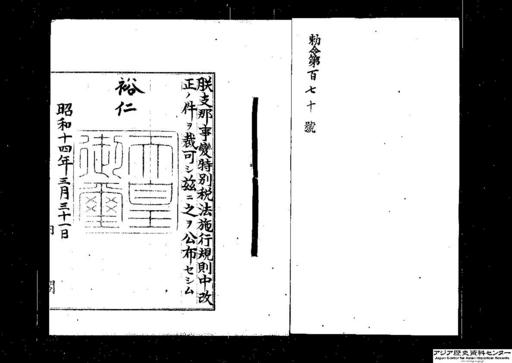 勅令第百七十號
朕支那事變特別税法施行規則中改
正ノ件ヲ裁可シ茲ニ之ヲ公布セシム
裕仁
天皇御璽
昭和十四年三月三十一日
アジア歴史資料センター
Japan Center for Asian Historical Records